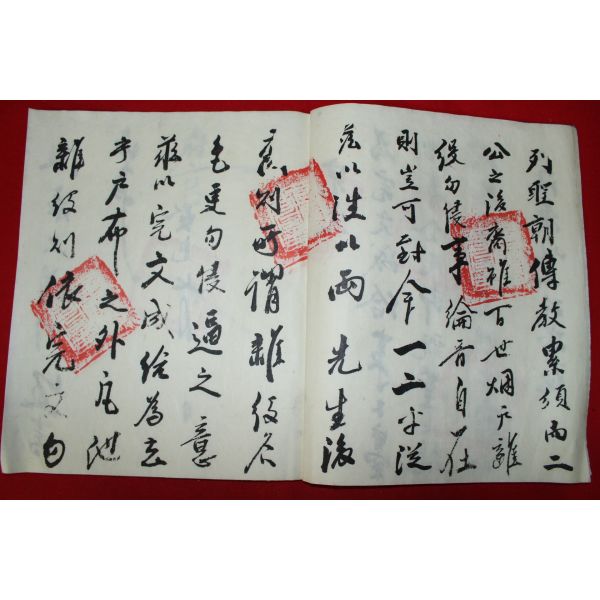 列聖朝傳教累煩而二
公之後裔雖百世烟戶雜
役勿侵事綸音自在
則豈可對今一二乎從
茲以往以兩先生後
裔則所謂雜役名
色更勿侵逼之意
玆以完文成給爲去
乎戶布之外凡他
雜役則依完文勿